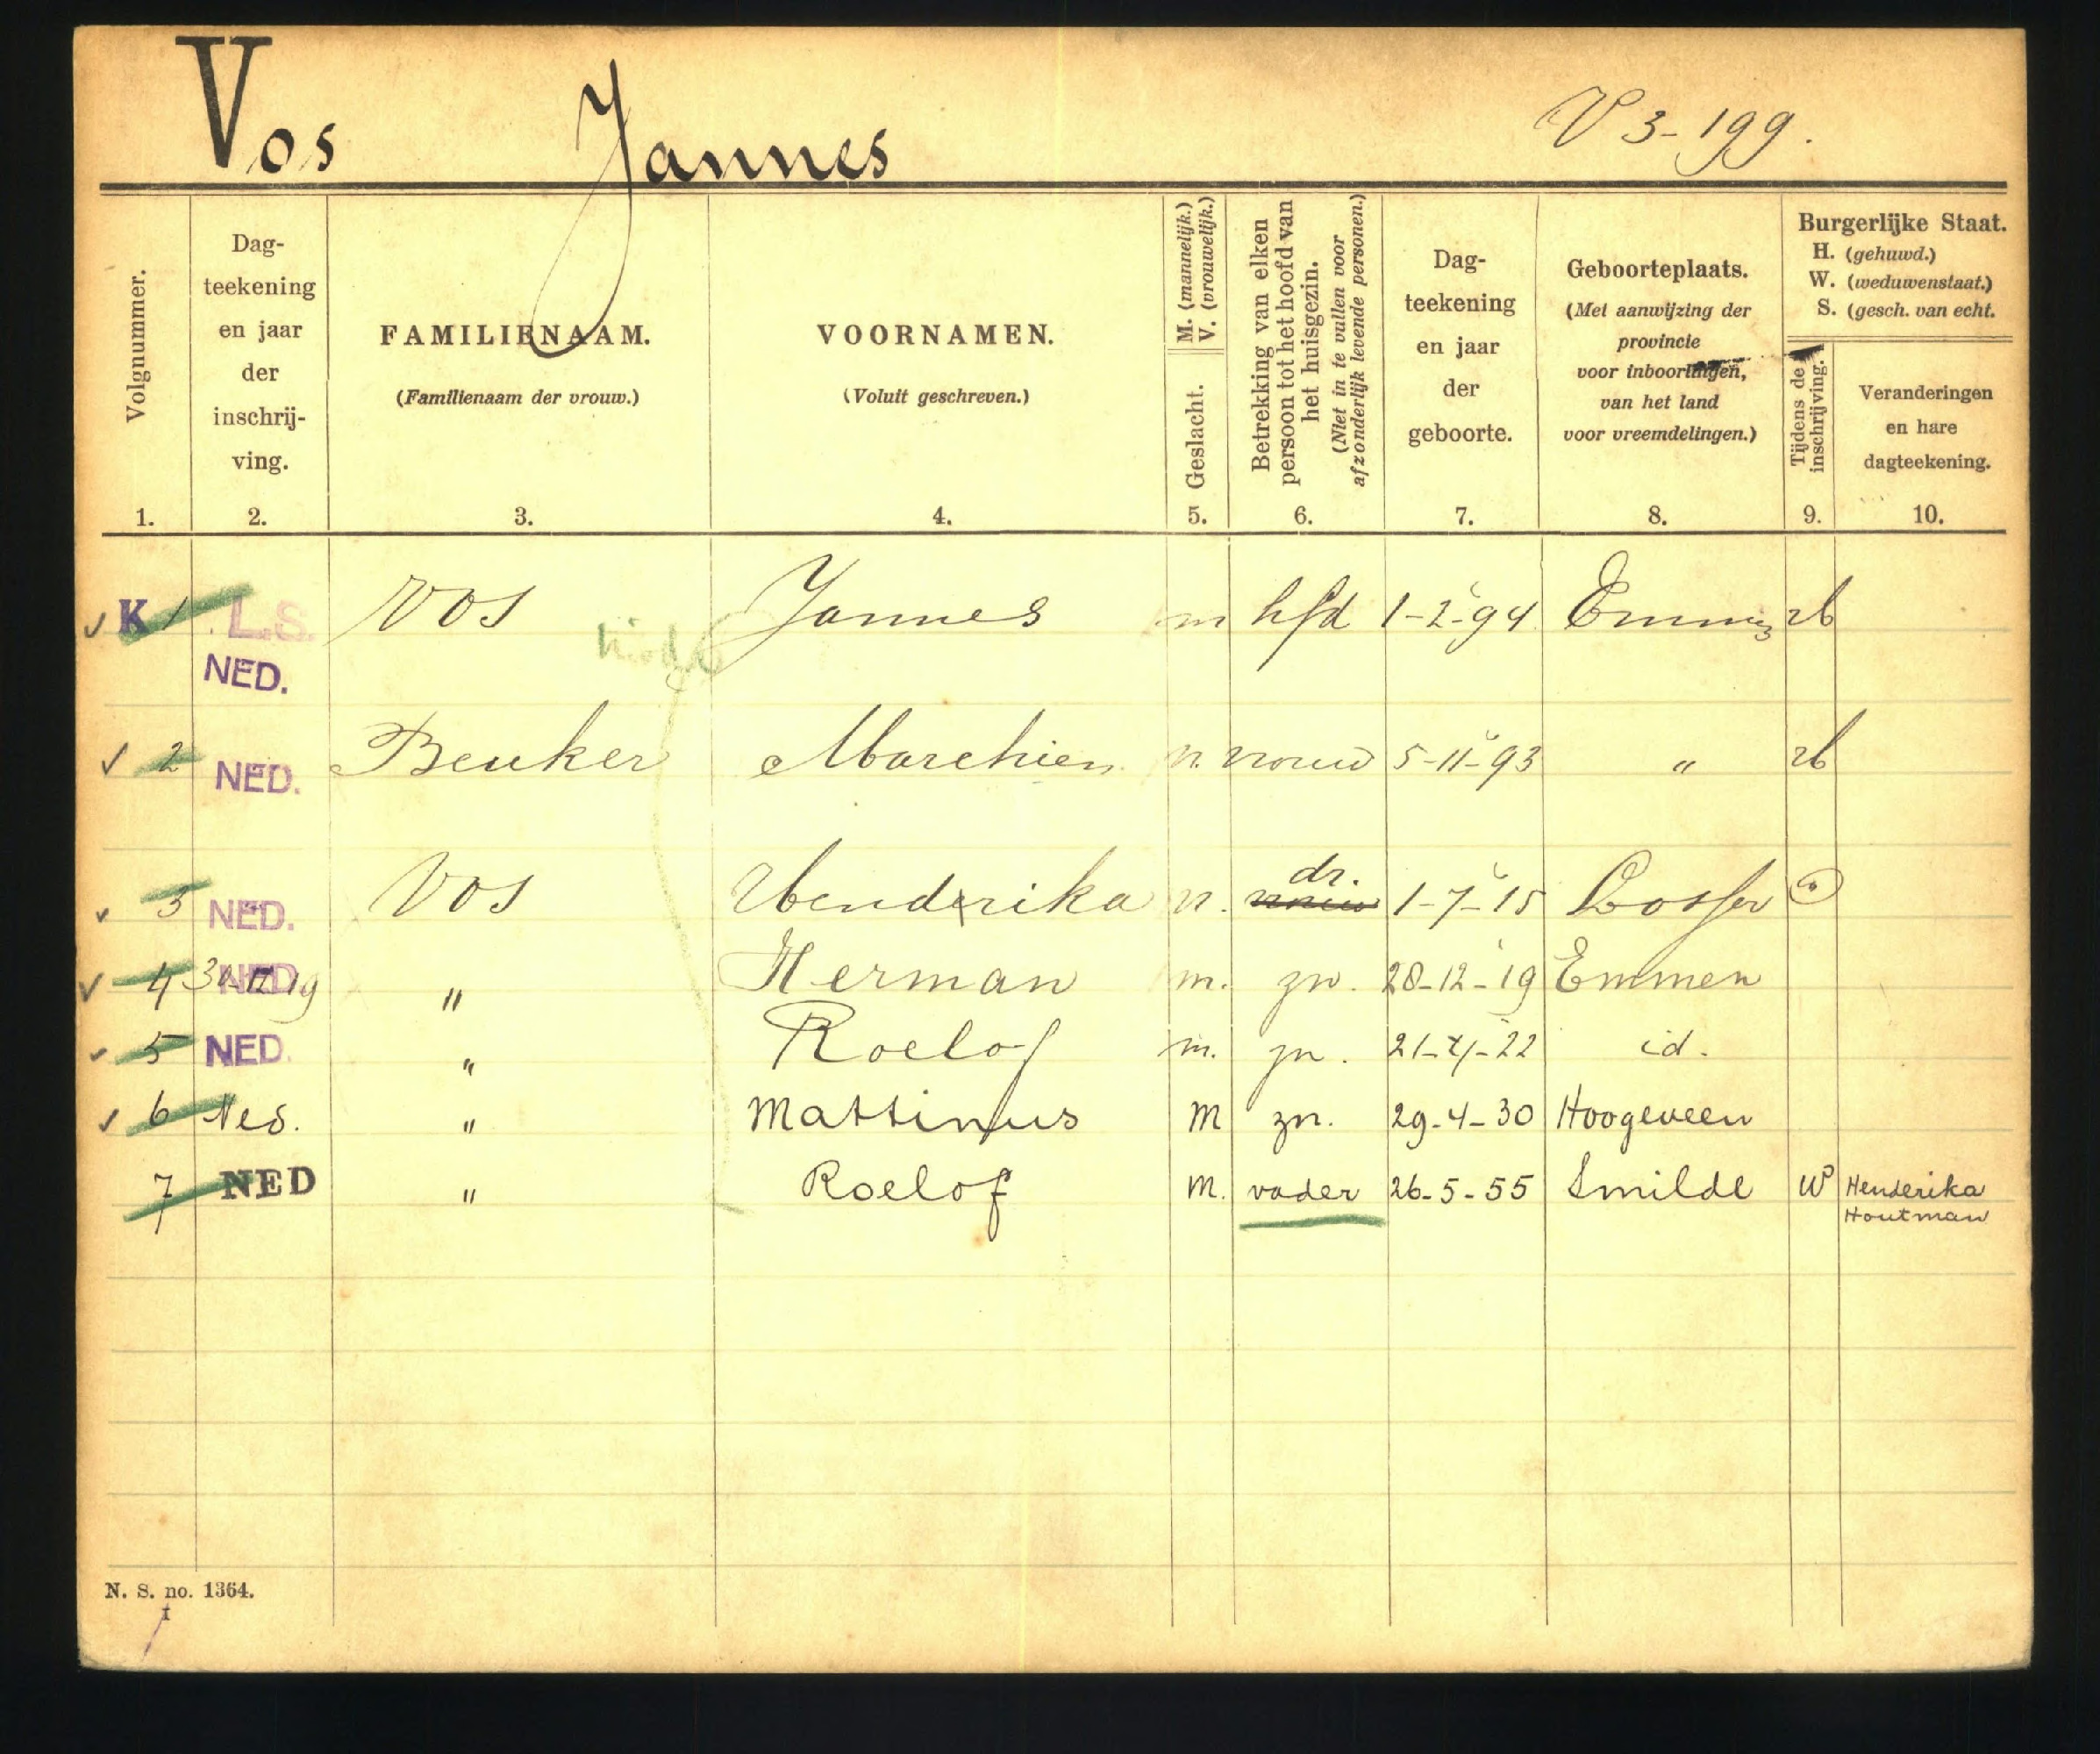 Vos Jannes V 3-199.
Volgnummer.
1.
Dag-
teekening
en jaar
der
inschrij-
ving.
2.
FAMILIENAAM.
(Familienaam der vrouw.)
3.
VOORNAMEN.
(Voluit geschreven.)
4.
M. (mannelijk.)
V. (vrouwelijk.)
Geslacht.
5.
Betrekking van elken
persoon tot het hoofd van
het huisgezin.
(Niet in te vullen voor
afzonderlijk levende personen.)
6.
Dag-
teekening
en jaar
der
geboorte.
7.
Geboorteplaats.
(Met aanwijzing der
provincie
voor inboorlingen,
van het land
voor vreemdelingen.)
8.
Burgerlijke Staat.
H. (gehuwd.)
W. (weduwenstaat.)
S. (gesch. van echt.
Tijdens de
inschrijving.
9.
Veranderingen
en hare
dagteekening.
10.
K 1 L.S. Vos Jannes m hfd 1-2-94 Emmen H
NED.
2 NED. Beuker Marchien v. vrouw 5-11-93 " H
dr.
3 NED. Vos Henderika v. vrouw 1-7-15 Losser
4 NED " Herman m. zn. 28-12-19 Emmen
5 NED. " Roelof m. zn. 21-4-22 id.
6 Ned. " Mattinus M zn. 29-4-30 Hoogeveen
7 NED " Roelof M. vader 26-5-55 Smilde W Henderika
Houtman
N. S. no. 1364.